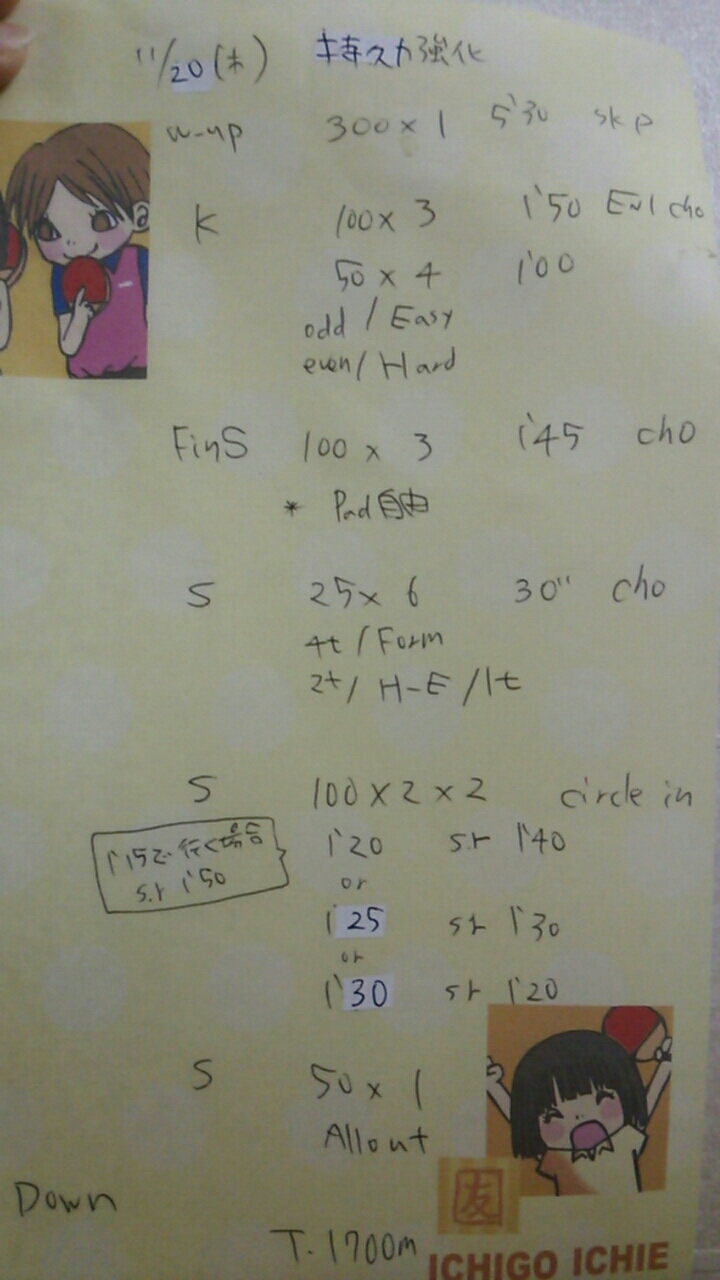 11/20(木) 持久力強化
w-up 300×1 5'30 skp
K 100×3 1'50 E~1 cho
50×4 1'00
odd / Easy
even / Hard
FinS 100×3 1'45 cho
* Pad自由
S 25×6 30" cho
4t / Form
2t / H-E / 1t
S 100×2×2 circle in
1'15で行く場合
s.r 1'50
1'20 s.r 1'40
or
1'25 s r 1'30
or
1'30 s r 1'20
S 50×1
All out
Down
友
T. 1700m
ICHIGO ICHIE